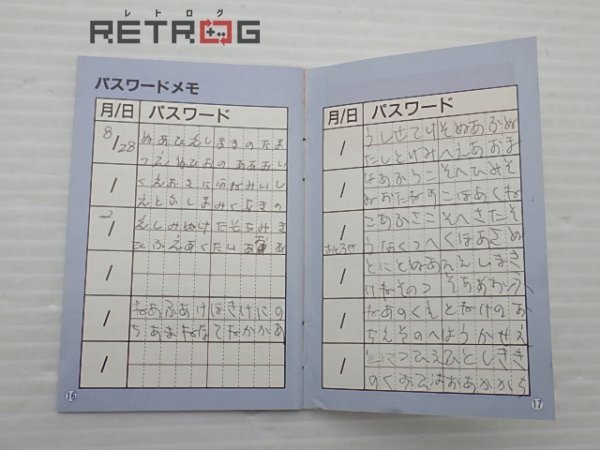 レトログ
RETROG
パスワードメモ
月/日 パスワード
8/28 ぬあひえしまきのたま
つええぬひおのあああい
/ くえおさにのがみいし
えとふしよみくろきの
/ えしみぬけたそちみき
ひふえあくたい
/
/ なあふあけほきけにの
ちあまななてなかかあ
/
16
月/日 パスワード
/ うしせてりそぬあふぬ
たしとけみへえあおま
/ はあかうこそへひみそ
ぬおたねすこほあくね
/ こあふさこそへきたそ
うなくつへくほあさぬ
/ とにとぬあえしまさ
けねそのつそちあわふ
/ なあのくえとなけのお
ちえそのへはうかせえ
/ とてつひえひとしきき
のくおひはおあかから
17